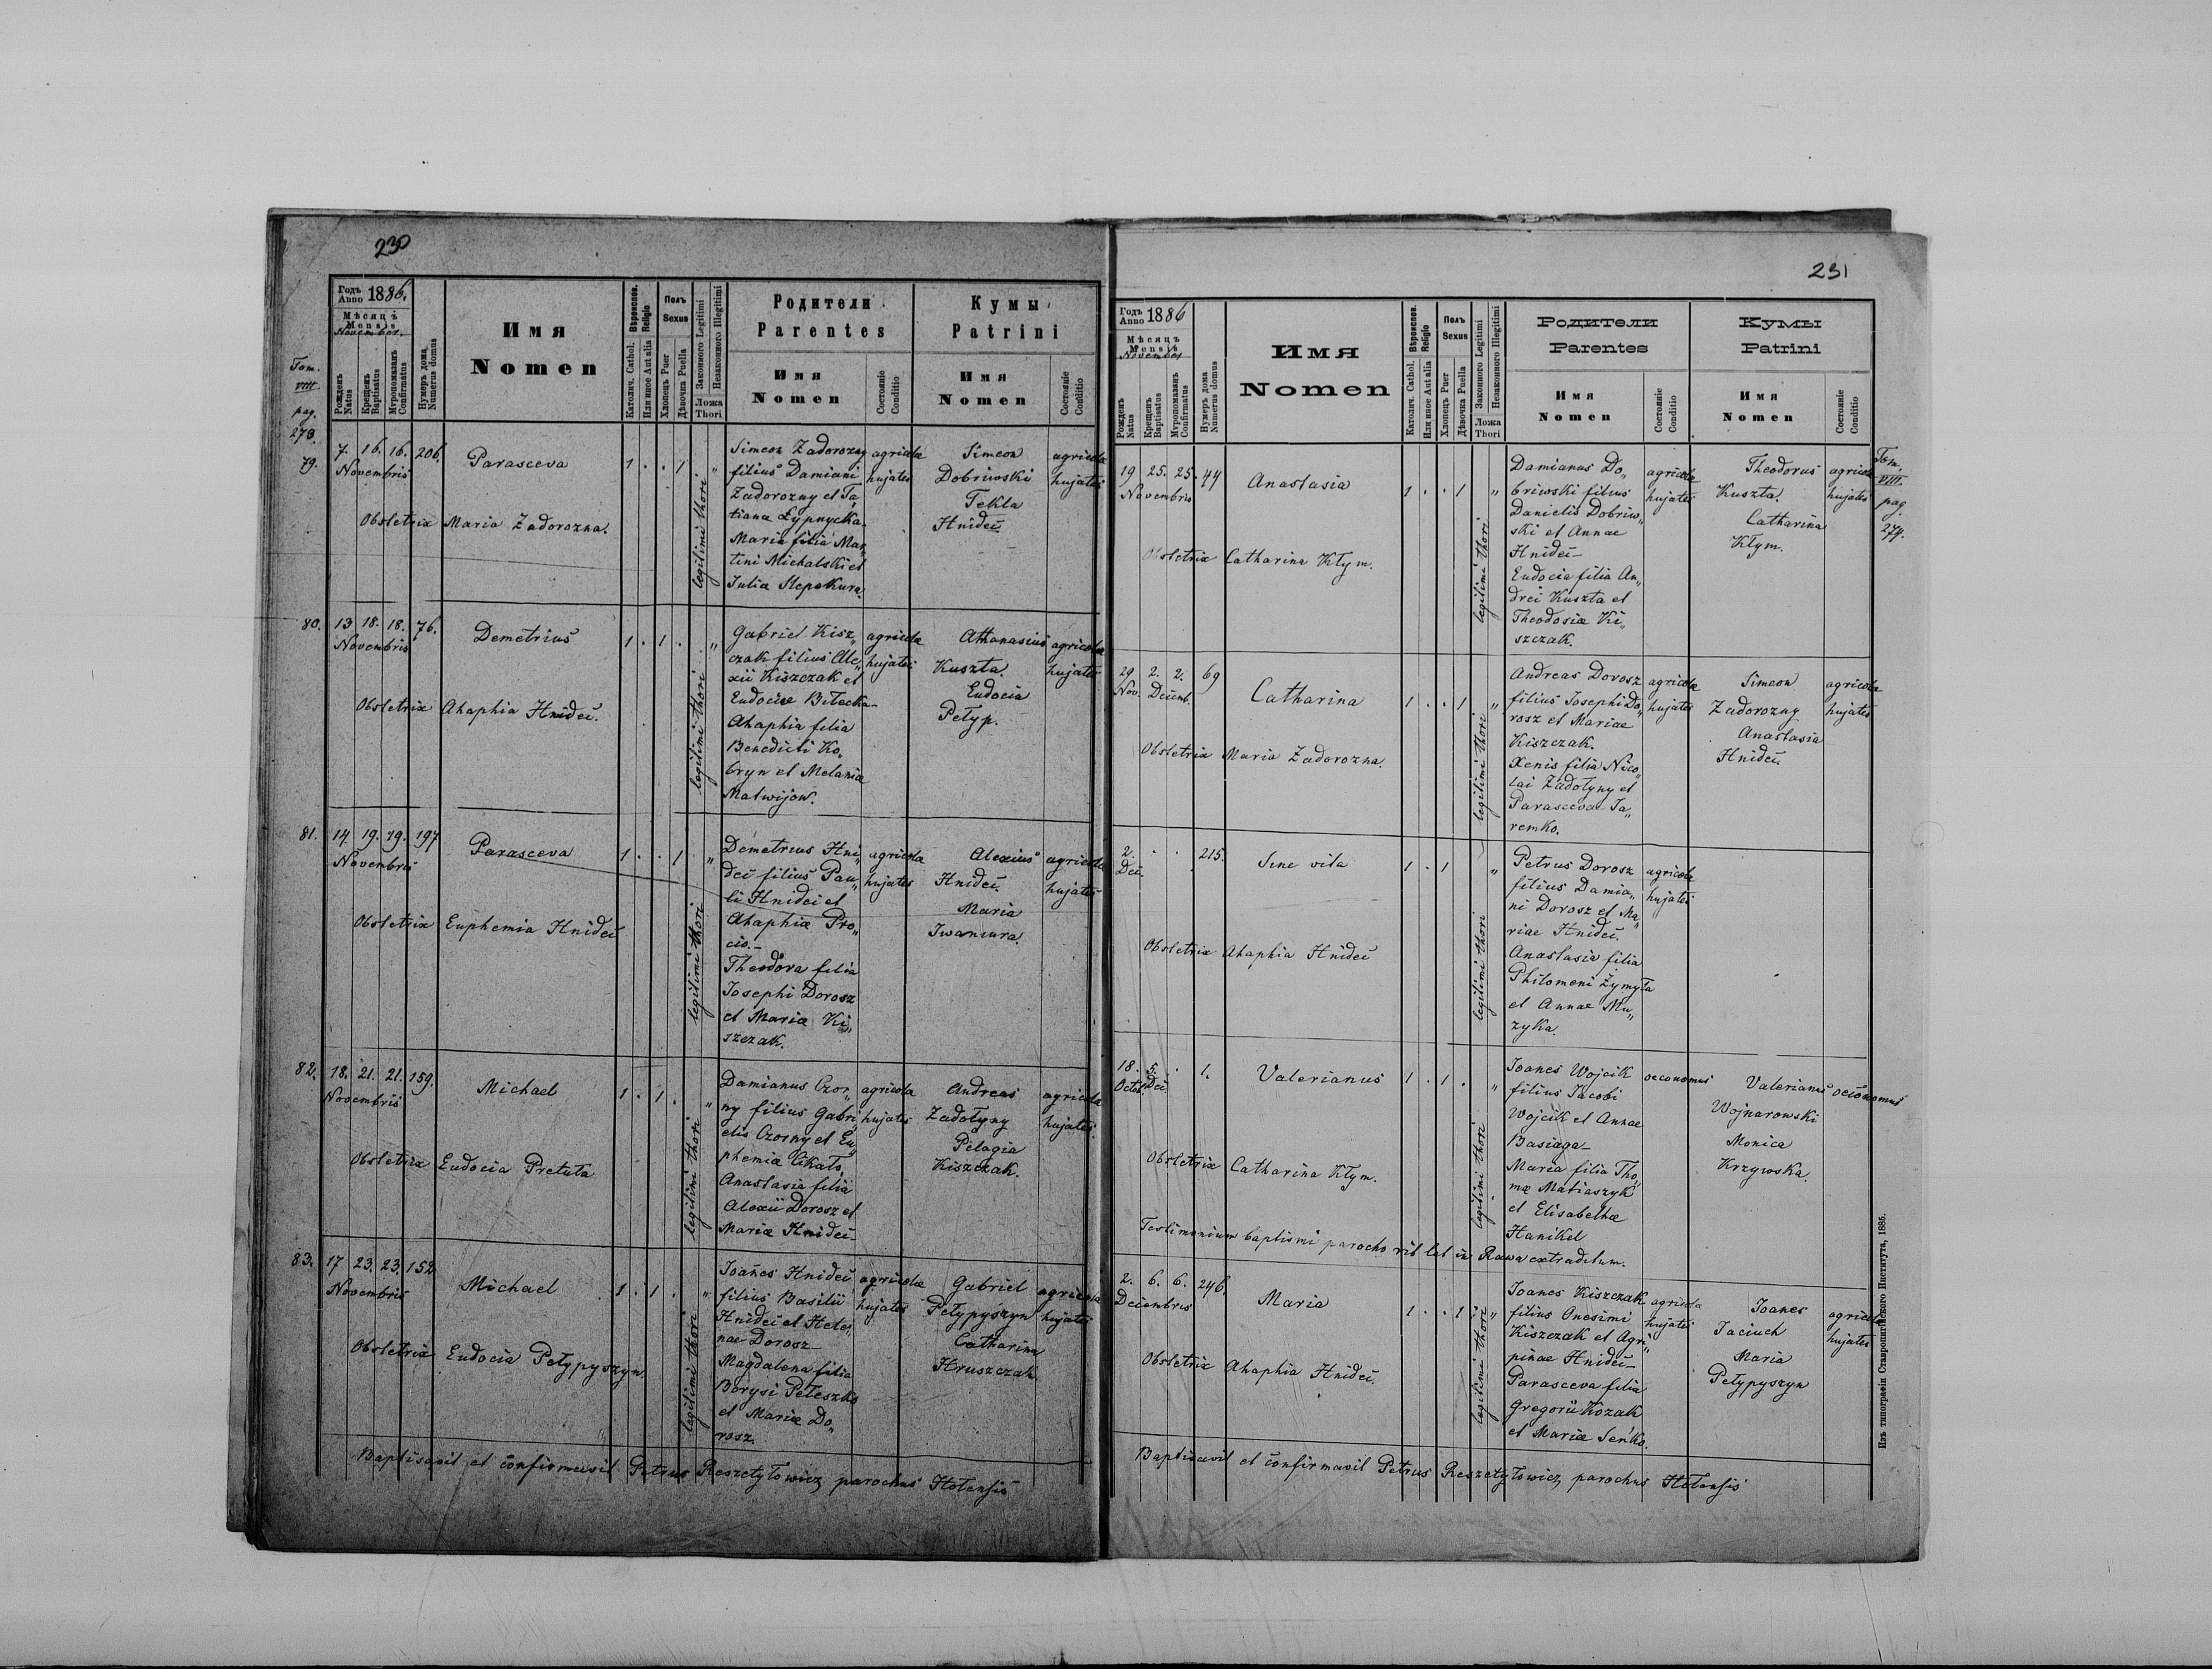 230
Годъ Anno 1886.
Мѣсяцъ Mensis
November.
Рожденъ Natus
Крещенъ Baptisatus
Мѵропомазанъ Confirmatus
Нумеръ дома Numerus domus
Имя
Nomen
Вѣроиспов. Religio
Католич. Cathol.
Или иное Aut alia
Полъ Sexus
Хлопецъ Puer
Дѣвочка Puella
Законного Legitimi
Незаконного Illegitimi
Ложа Thori
Родители
Parentes
Имя
Nomen
Состояніе Conditio
Кумы
Patrini
Имя
Nomen
Состояніе Conditio
Tom.
VIII.
pag.
273.
79. 7. 16. 16. 206. Parasceva 1 . . 1 . "
Novembris
Obstetrix Maria Zadorozna.
legitimi thori
Simeon Zadorozny agricola
filius Damiani hujates
Zadorozny et Ta„
tiana Łypnycka.
Maria filia Mar„
tini Michalski et
Julia Stepokura.
Simeon agricola
Dobriwski hujates
Tekla
Hnideĭ
80. 13 18. 18. 76. Demetrius 1 . 1 . "
Novembris
Obstetrix Ahaphia Hnideĭ.
legitimi thori
Gabriel Kisz„ agricola
czak filius Ale„ hujates
xii Kiszczak et
Eudociæ Bilecka
Ahaphia filia
Benedicti Ko„
bryn et Melania
Matwijow.
Athanasius agricola
Kuszta. hujates
Eudocia
Petyp.
81. 14. 19. 19. 197 Parasceva 1 . . 1 "
Novembris
Obstetrix Euphemia Hnideĭ
legitimi thori
Demetrius Hni„ agricola
deĭ filius Pau„ hujates
li Hnidei et
Ahaphiæ Pro„
cio.-
Theodora filia
Josephi Dorosz
et Mariæ Ki„
szczak.
Alexius agricola
Hnideĭ. hujates
Maria
Iwanura.
82. 18. 21. 21. 159. Michael 1 . 1 . "
Novembris
Obstetrix Eudocia Pretuta
legitimi thori
Damianus Czor„ agricola
ny filius Gabri„ hujates
elis Czorny et Eu„
phemiæ Cikało,
Anastasia filia
Alexii Dorosz et
Mariæ Hnideĭ-
Andreas agricola
Zadotyny hujates
Pelagia
Kiszczak.
83. 17 23. 23. 152 Michael 1 . 1 . "
Novembris
Obstetrix Eudocia Petypyszyn
legitimi thori
Joanes Hnideĭ agricola
filius Basilii hujates
Hnideĭ et Hele„
nae Dorosz-
Magdalena filia
Borysi Peteszko
et Mariæ Do„
rosz.
Gabriel agricola
Petypyszyn hujates
Catharina
Hruszczak
Baptisavit et confirmavit Petrus Reszetyłowicz parochus Hotensis
231
Годъ Anno 1886
Мѣсяцъ Mensis
November
Рожденъ Natus
Крещенъ Baptisatus
Мѵропомазанъ Confirmatus
Нумеръ дома Numerus domus
Имя
Nomen
Вѣроиспов. Religio
Католич. Cathol.
Или иное Aut alia
Полъ Sexus
Хлопецъ Puer
Дѣвочка Puella
Законного Legitimi
Незаконного Illegitimi
Ложа Thori
Родители
Parentes
Имя
Nomen
Состояніе Conditio
Кумы
Patrini
Имя
Nomen
Состояніе Conditio
Tom.
VIII.
pag.
274.
19 25. 25. 44 Anastasia 1 . . 1 "
Novembris
Obstetrix Catharina Kłym.
legitimi thori
Damianus Do„ agricola
briwski filius hujates
Danielis Dobriw„
ski et Annae
Hnideĭ-
Eudocia filia An„
drei Kuszta et
Theodosiæ Ki„
szczak.
Theodorus agricola
Kuszta. hujates
Catharina
Kłym.
29 2. 2. 69 Catharina 1 . . 1 "
Nov. Decemb.
Obstetrix Maria Zadorozna.
legitimi thori
Andreas Dorosz agricola
filius Josephi Do„ hujates
rosz et Mariae
Kiszczak.
Xenis filia Nico„
lai Zadotyny et
Parasceva Ja„
remko.
Simeon agricola
Zadorozny hujates
Anastasia
Hnideĭ.
2. . . 215. Sine vita 1 . 1 "
Dec.
Obstetrix Ahaphia Hnideĭ
legitimi thori
Petrus Dorosz agricola
filius Damia„ hujates
ni Dorosz et Ma„
riae Hnideĭ.
Anastasia filia
Philomeni Żymyta
et Annae Mu„
zyka.
18. 5. . 1. Valerianus 1 . 1 . "
Octob. Dec.
Obstetrix Catharina Kłym.
legitimi thori
Joanes Wojcik oeconomus
filius Jacobi
Wojcik et Annae
Basiaga-
Maria filia Tho„
mæ Matiaszyk
et Elisabethæ
Hanikel
Valerianus oeconomus
Wojnarowski
Monica
Krzywska.
Testimonium baptismi parocho rit lat in Rawa extraditum.
2. 6. 6. 246. Maria 1 . . 1 "
Decembris
Obstetrix Ahaphia Hnideĭ.
legitimi thori
Joanes Kiszczak agricola
filius Onesimi hujates
Kiszczak et Agri„
pinae Hnideĭ-
Parasceva filia
Gregorii Kozak
et Mariæ Seńko.
Joanes agricola
Jaciuch hujates
Maria
Petypyszyn
Baptisavit et confirmavit Petrus Reszetyłowicz parochus Hotensis
Изъ типографіи Ставропигійского Института, 1885.